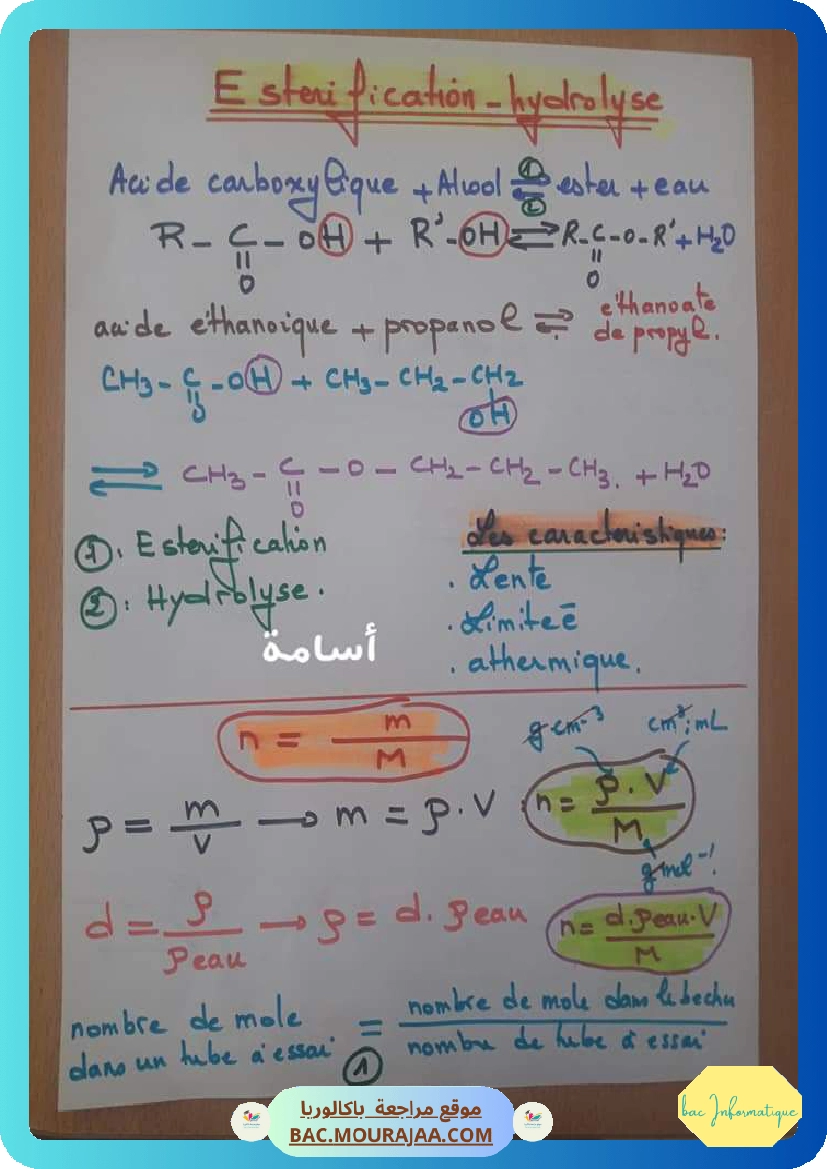 Esterification - hydrolyse
Acide carboxylique + Alcool ⇌ ester + eau
1
2
R - C - OH + R' - OH ⇌ R - C - O - R' + H2O
O O
acide éthanoique + propanol ⇌ éthanoate
de propyl.
CH3 - C - OH + CH3 - CH2 - CH2
O OH
⇌ CH3 - C - O - CH2 - CH2 - CH3. + H2O
O
1 : Esterification
2 : Hydrolyse.
أسامة
Les caracteristiques :
. Lente
. Limiteé
. athermique.
n = m / M
ρ = m / V → m = ρ . V
g.cm-3 cm3; mL
n = ρ . V / M
g.mol-1
d = ρ / ρeau → ρ = d . ρeau
n = d.ρeau.V / M
nombre de mole
dans un tube à essai = nombre de mole dans le bechu / nombre de tube à essai
1
موقع مراجعة باكالوريا
BAC.MOURAJAA.COM
bac Informatique